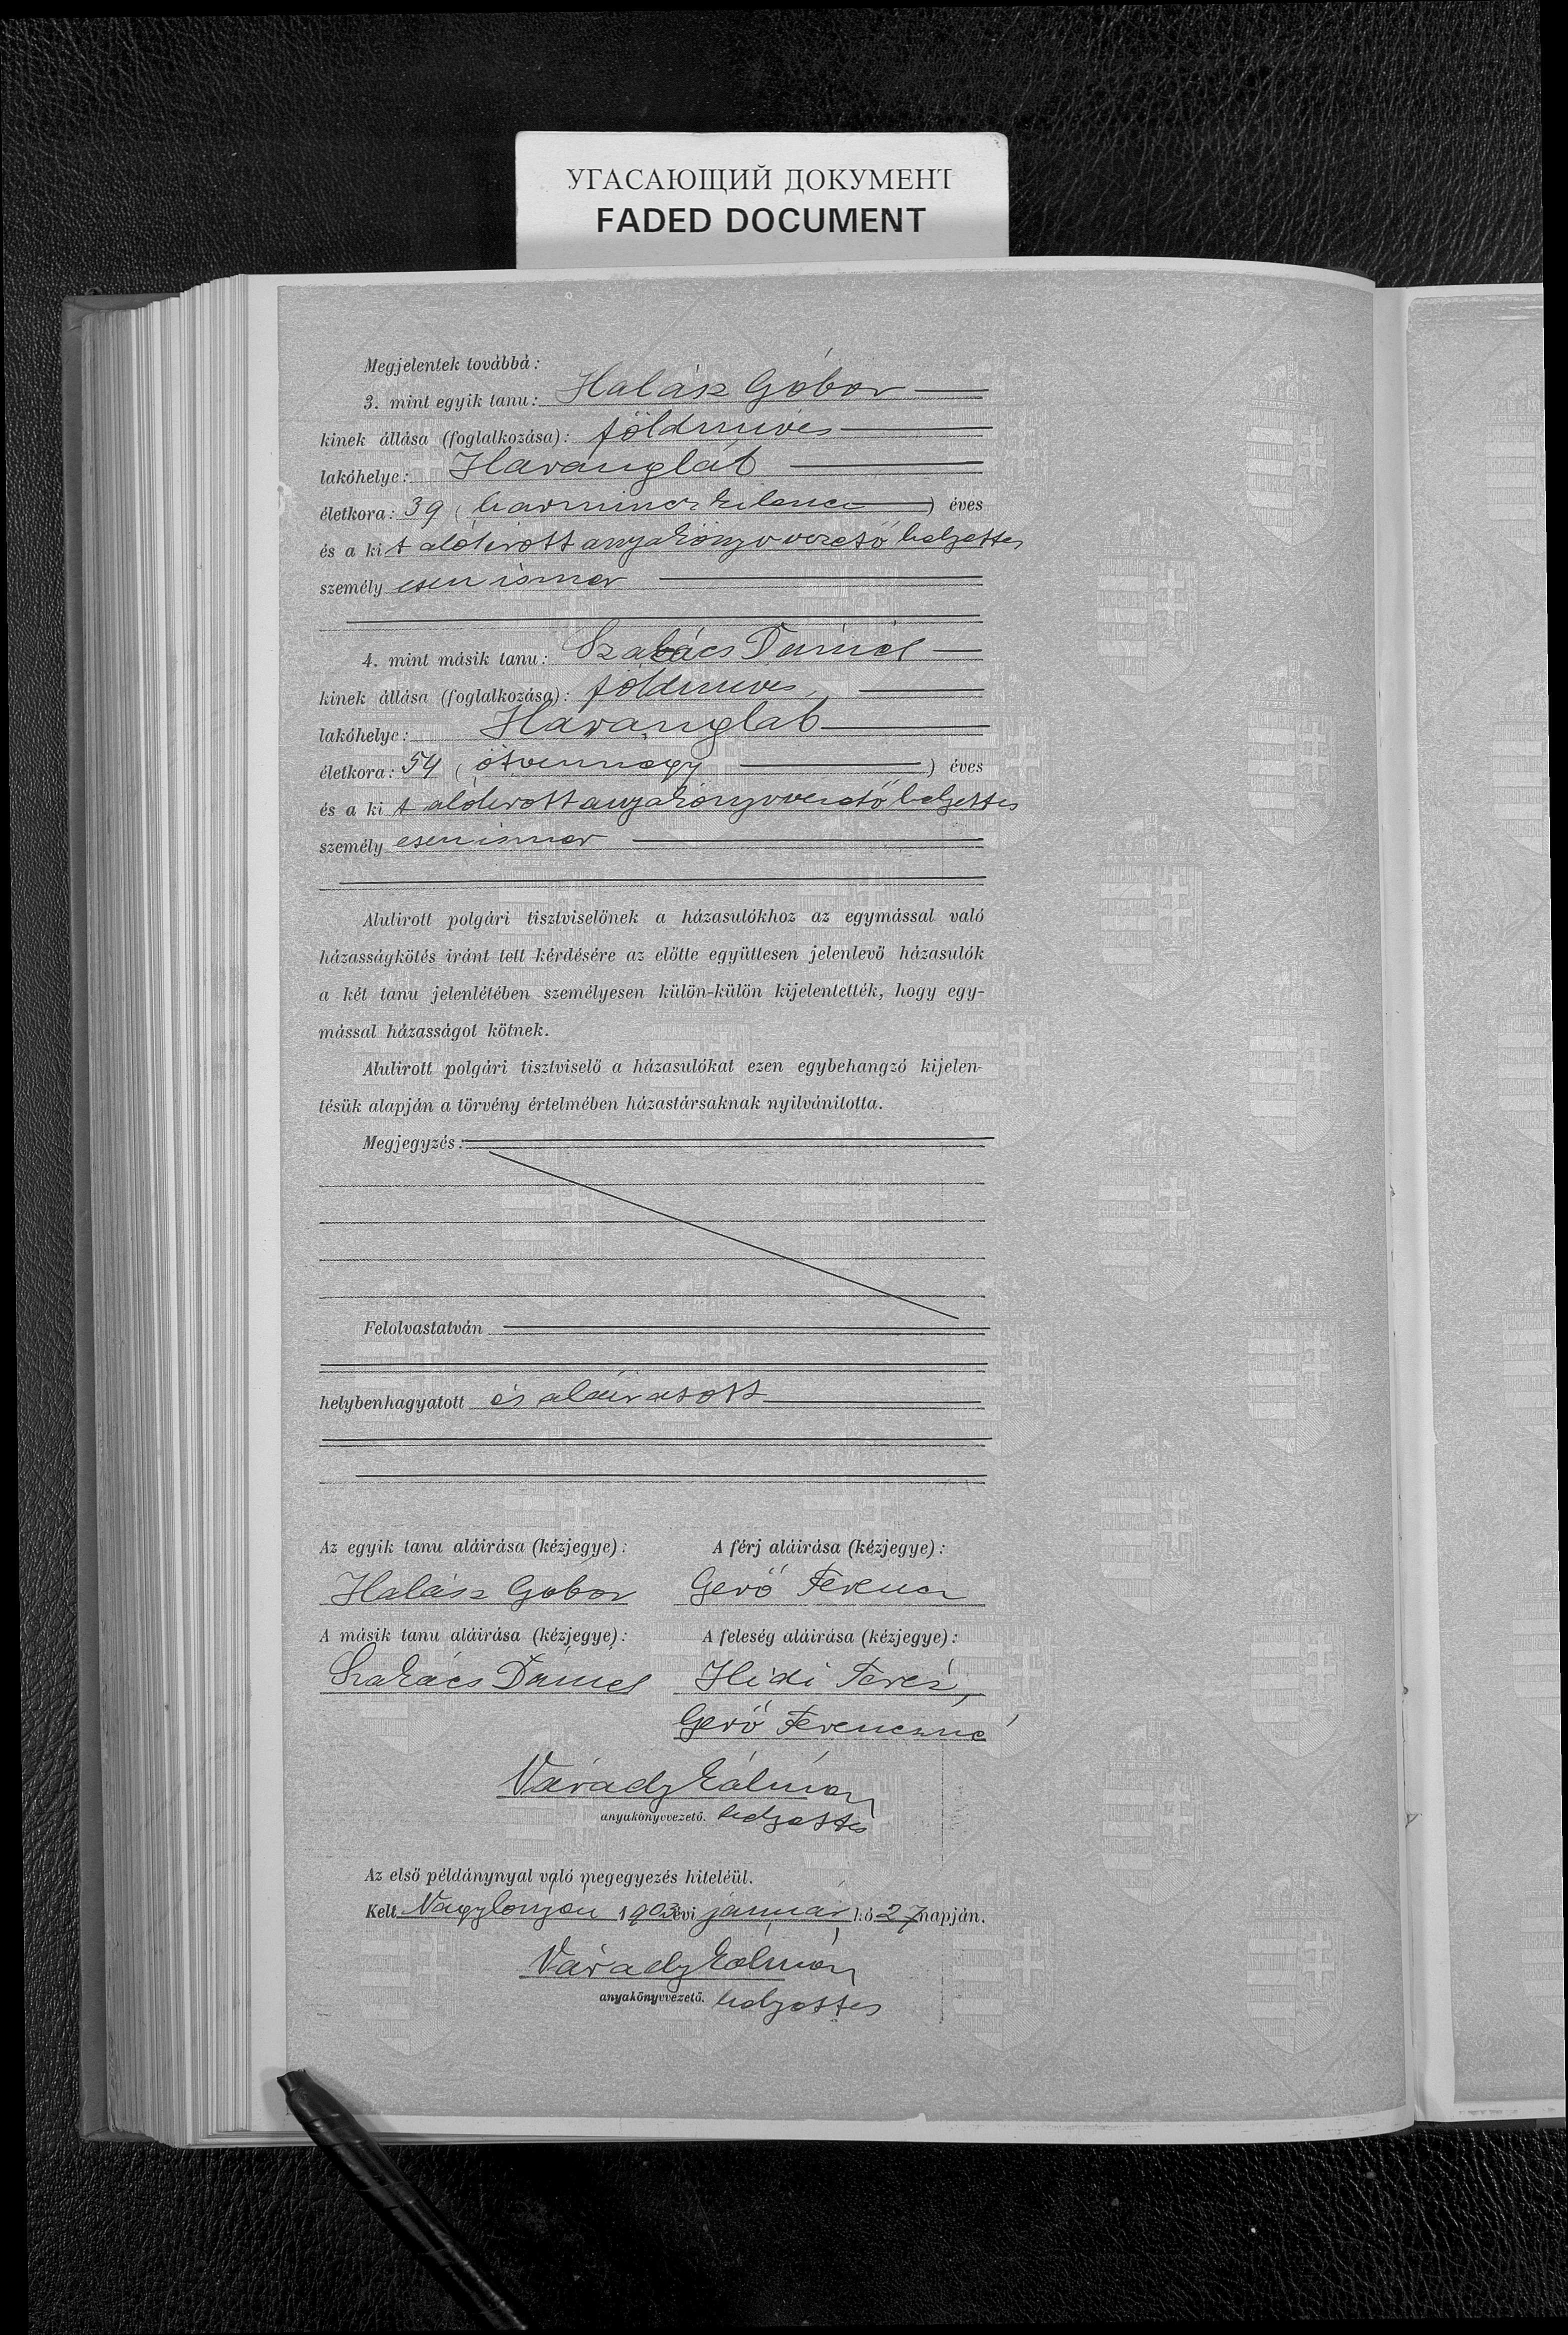 УГАСАЮЩИЙ ДОКУМЕНТ
FADED DOCUMENT
Megjelentek továbbá:
3. mint egyik tanu: Halász Gábor
kinek állása (foglalkozása): földmives
lakóhelye: Harangláb
életkora: 39 (harminczkilencz) éves
és a ki t alólirott anyakönyvvezető helyettes
személyesen ismer
4. mint másik tanu: Szakács Dániel
kinek állása (foglalkozása): földmives
lakóhelye: Harangláb
életkora: 54 (ötvennégy) éves
és a ki t alólirott anyakönyvvezető helyettes
személyesen ismer
Alulirott polgári tisztviselőnek a házasulókhoz az egymással való
házasságkötés iránt tett kérdésére az előtte együttesen jelenlevő házasulók
a két tanu jelenlétében személyesen külön-külön kijelentették, hogy egy-
mással házasságot kötnek.
Alulirott polgári tisztviselő a házasulókat ezen egybehangzó kijelen-
tésük alapján a törvény értelmében házastársaknak nyilvánitotta.
Megjegyzés:
Felolvastatván
helybenhagyatott és aláiratott
Az egyik tanu aláirása (kézjegye): A férj aláirása (kézjegye):
Halász Gábor Gerő Ferencz
A másik tanu aláirása (kézjegye): A feleség aláirása (kézjegye):
Szakács Dániel Hidi Teréz,
Gerő Ferenczné
Várady Kálmán
anyakönyvvezető. helyettes
Az első példánynyal való megegyezés hiteléül.
Kelt Nagylonyon 1903 évi január hó 27 napján.
Várady Kálmán
anyakönyvvezető. helyettes